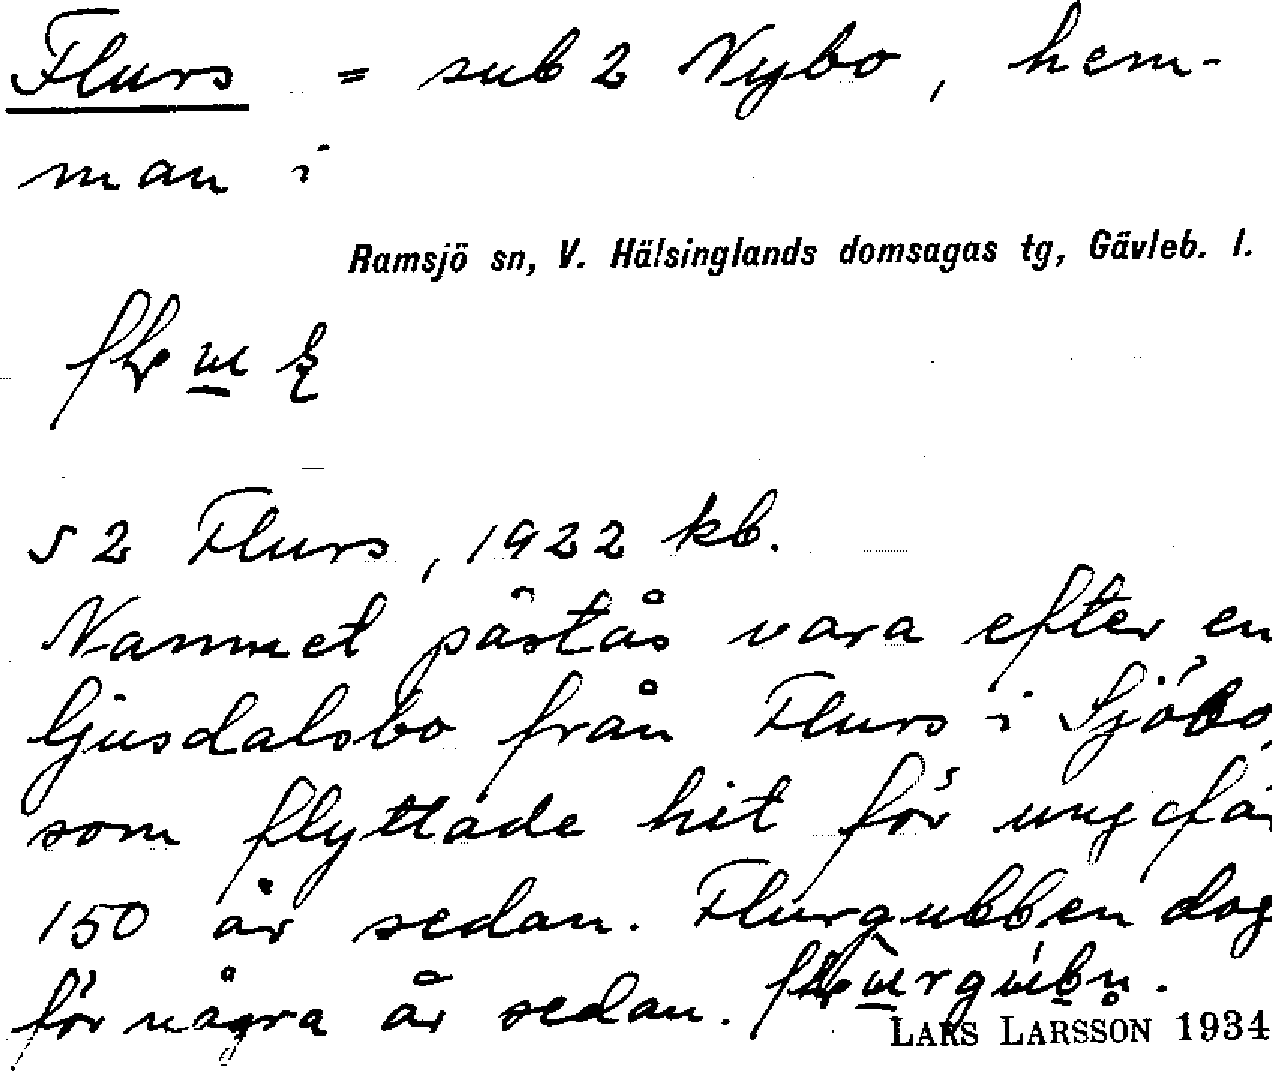 Flurs = sub 2 Nybo, hem-
man i
Ramsjö sn, V. Hälsinglands domsagas tg, Gävleb. l.
s 2 Flurs, 1922 kb.
Namnet påstås vara efter en
ljusdalsbo från Flurs i Sjöbo,
som flyttade hit för ungefär
150 år sedan. Flurgubben dog
för några år sedan.
LARS LARSSON 1934